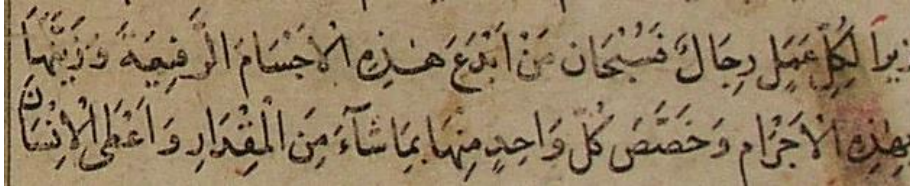 لِكُلِّ عَمَلٍ رِجَالٌ فَسُبْحَانَ مَنْ اَبْدَعَ هٰذِهِ الْاَجْسَامَ الرَّفِيْعَةَ وَزَيَّنَهَا
بِهٰذِهِ الْاَجْرَامِ وَخَصَّصَ كُلَّ وَاحِدٍ مِنْهَا بِمَا شَآءَ مِنَ الْمِقْدَارِ وَاَعْطَى الْاِنْسَانَ